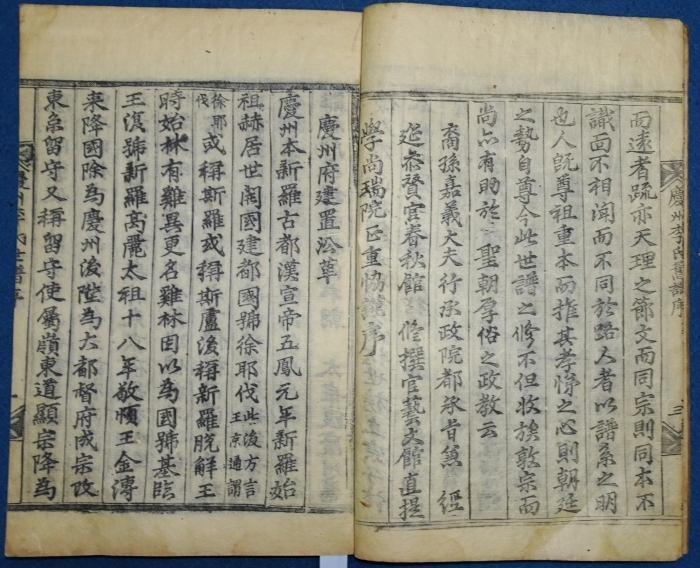 慶州李氏舊譜序
三
而遠者疏亦天理之節文而同宗則同本不
識面不相聞而不同於路人者以譜系之明
也人旣尊祖重本而推其孝悌之心則朝廷
之勢自尊今此世譜之修不但收族敦宗而
尚亦有助於 聖朝厚俗之政敎云
裔孫嘉義大夫行承政院都承旨兼 經
筵參贊官春秋館 修撰官藝文館直提
學尚瑞院正重協謹序
慶州府建置沿革
慶州本新羅古都漢宣帝五鳳元年新羅始
祖赫居世開國建都國號徐耶伐 此後方言王京通謂
徐耶伐 或稱斯羅或稱斯盧後稱新羅脫解王
時始林有雞異更名雞林因以爲國號基臨
王復號新羅高麗太祖十八年敬順王金傅
來降國除爲慶州後陞爲大都督府成宗改
東京留守又稱留守使屬嶺東道顯宗降爲
慶州李氏世譜序